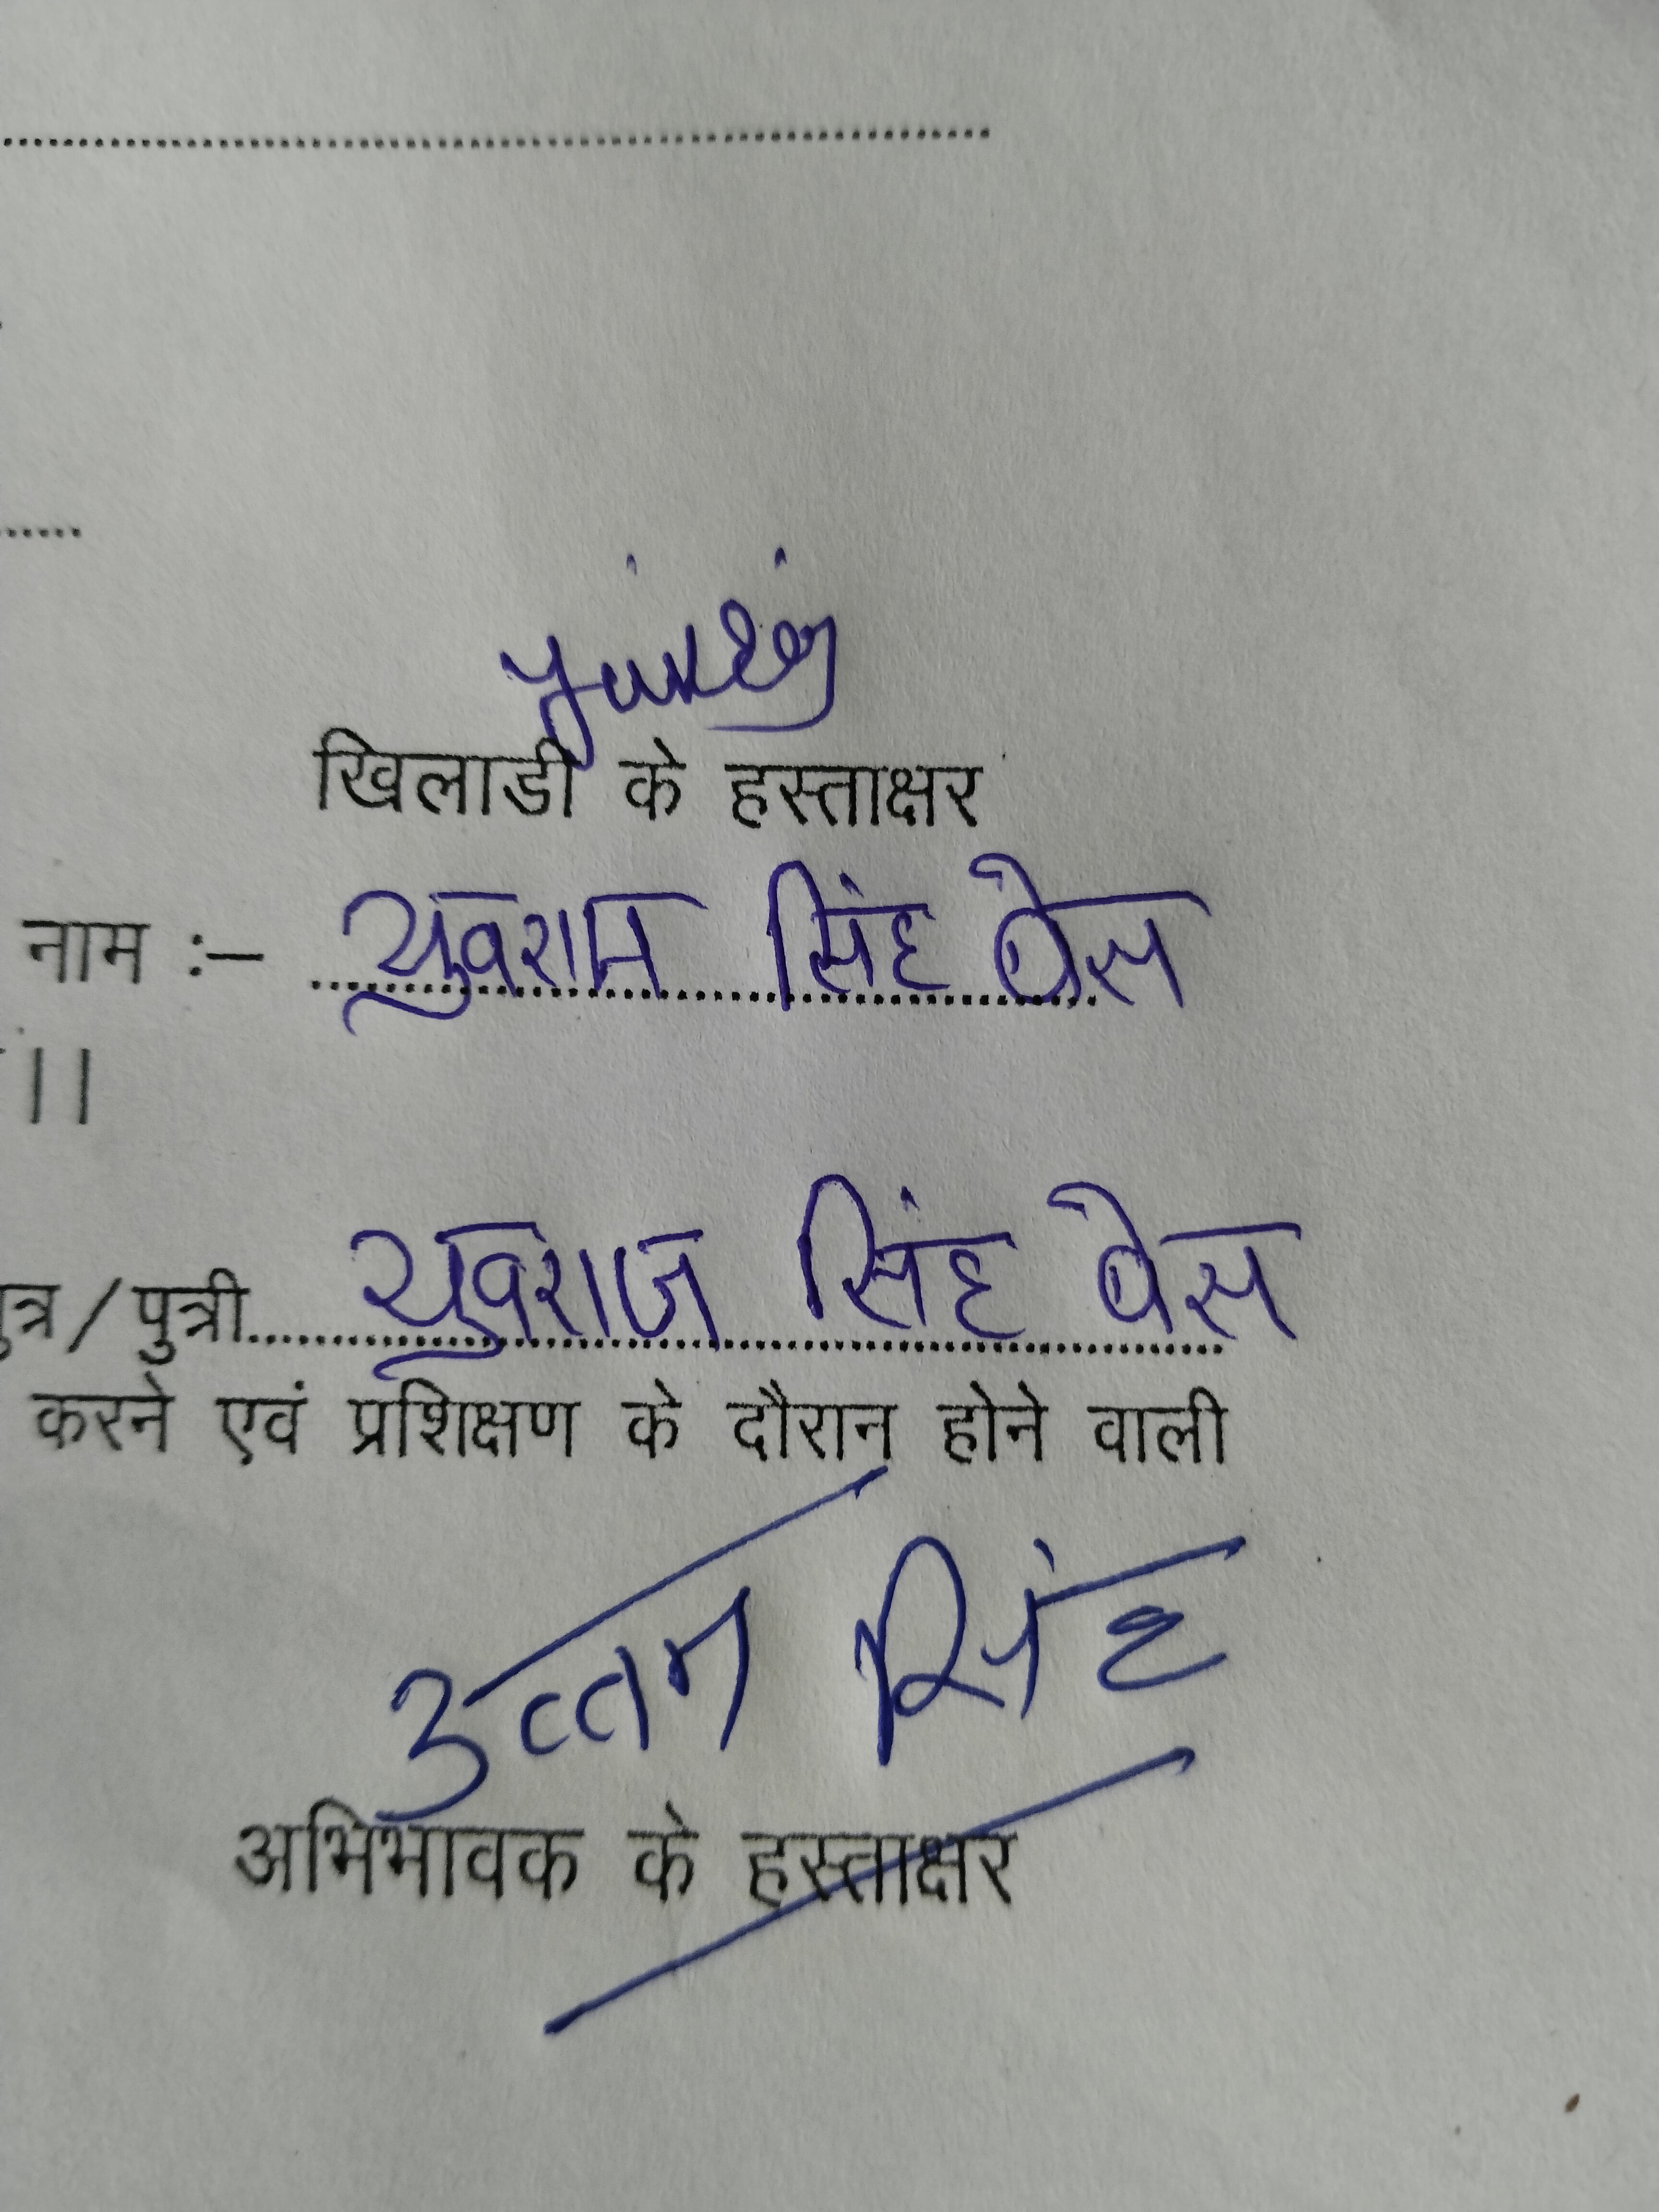 खिलाडी के हस्ताक्षर
नाम :– युवराज सिंह बैस
।।
पुत्र/पुत्री युवराज सिंह बैस
करने एवं प्रशिक्षण के दौरान होने वाली
उत्तम सिंह
अभिभावक के हस्ताक्षर